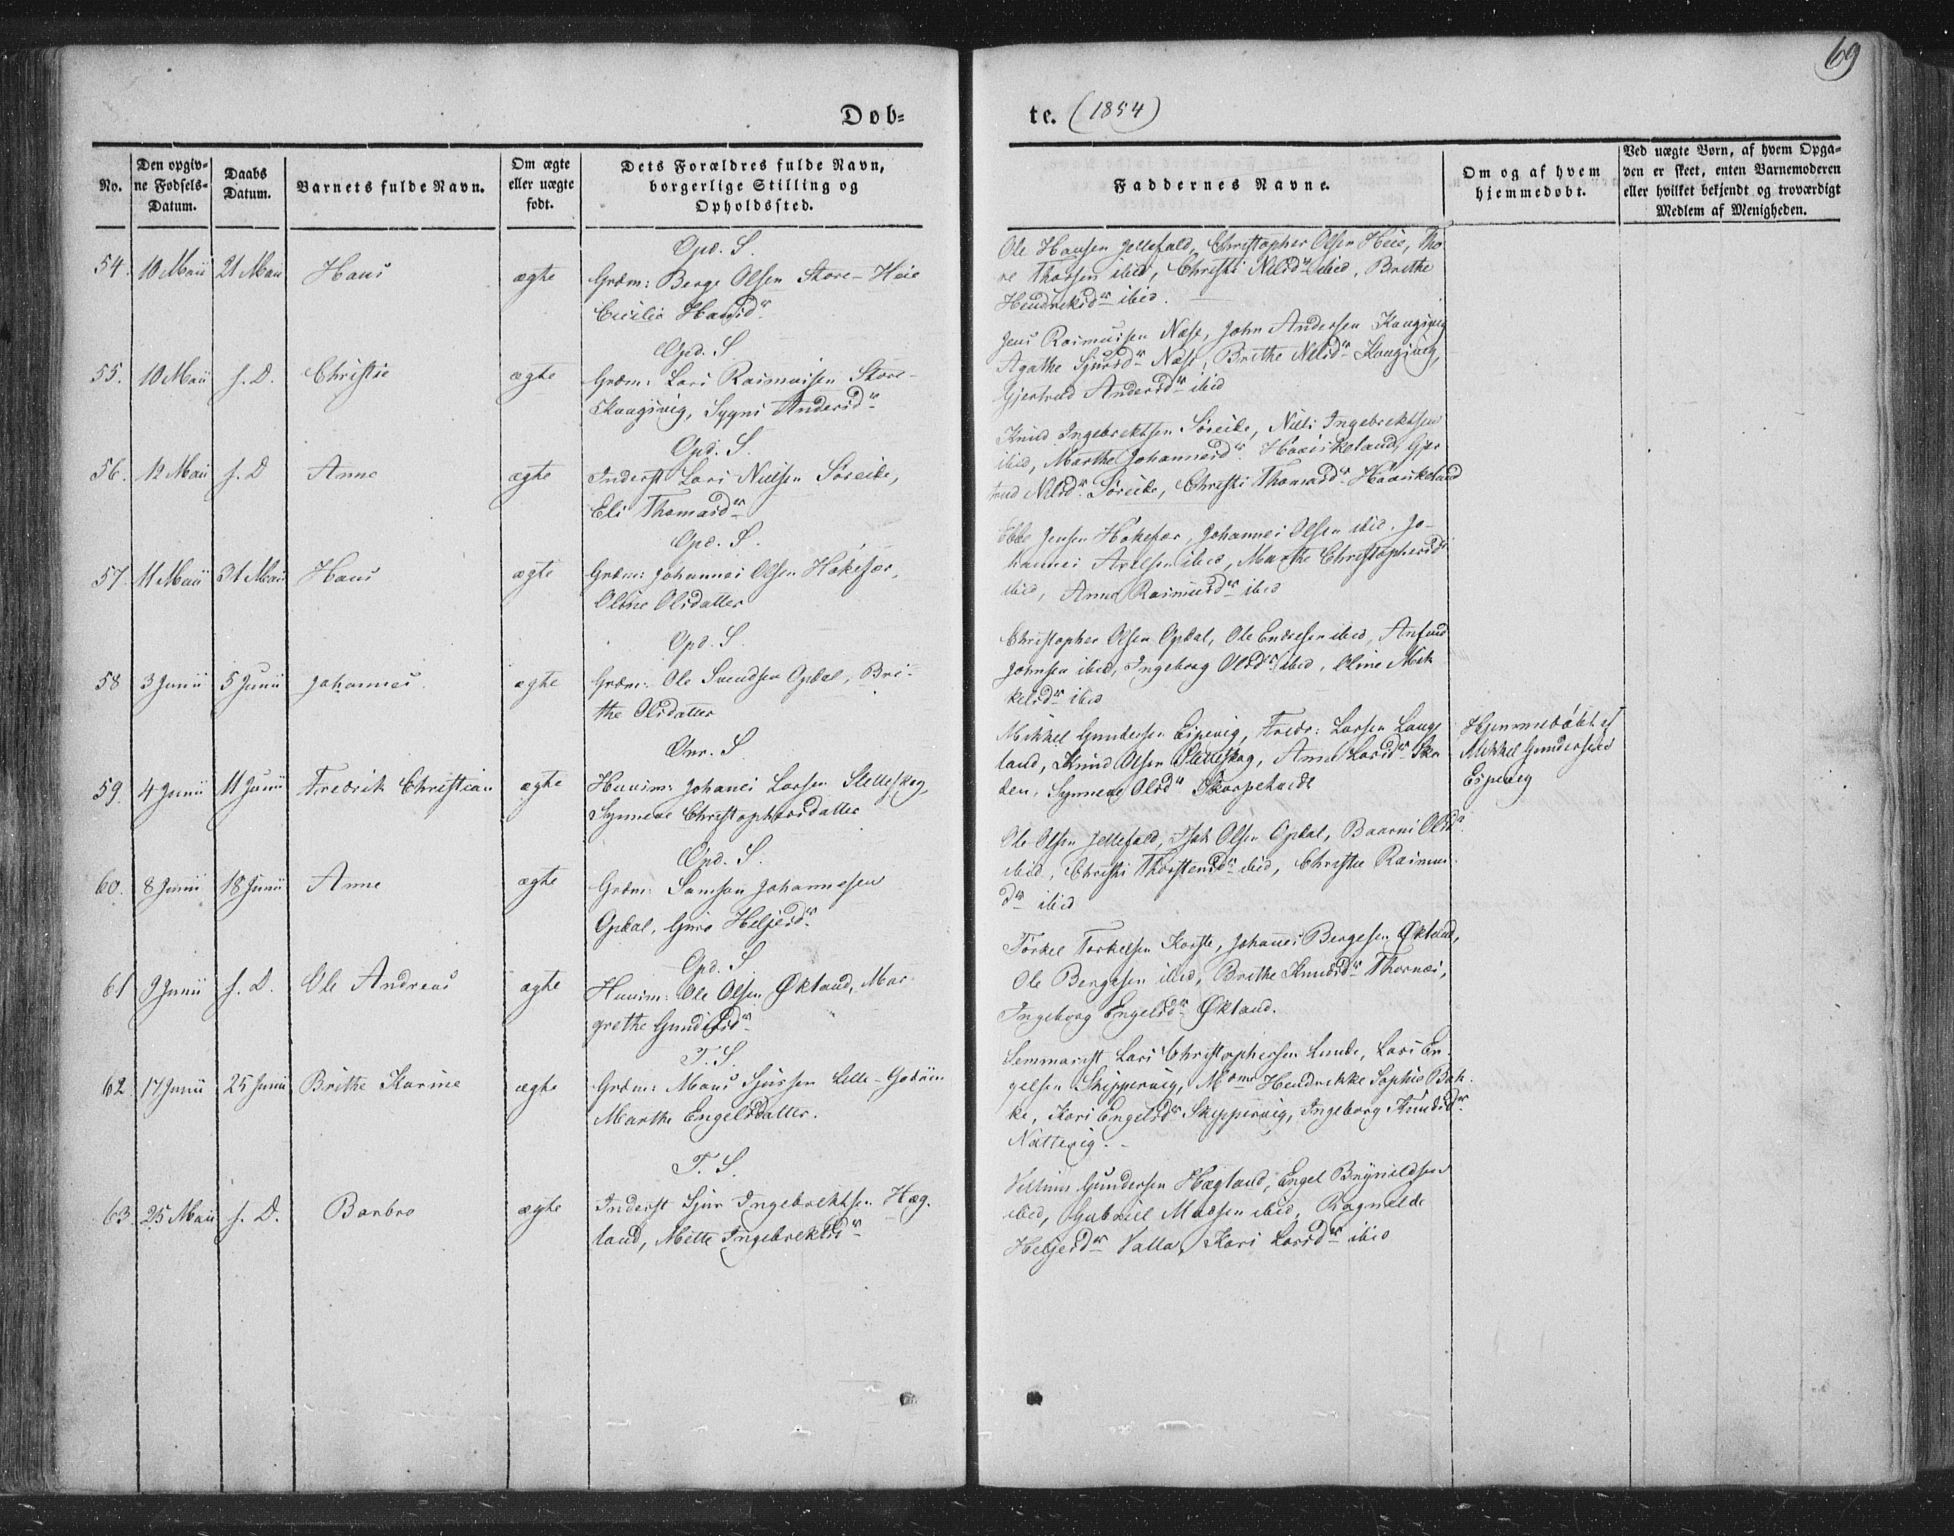 69
Døb=
te. (1854)
No.
Den opgiv-
ne Fødsels-
Datum.
Daabs
Datum.
Barnets fulde Navn.
Om ægte
eller uægte
født.
Dets Forældres fulde Navn,
borgerlige Stilling og
Opholdssted.
Faddernes Navne.
Om og af hvem
hjemmedøbt.
Ved uægte Børn, af hvem Opga-
ven er skeet, enten Barnemoderen
eller hvilket bekjendt og troværdigt
Medlem af Menigheden.
Opd. S.
54. 10 Maii 21 Maii Hans ægte Grdm: Berge Olsen Store-Heie
Cecilie Hansdr
Ole Hansen Jellefald, Christopher Olsen Heie, Tho
re Thorsen ibid, Christi Nilsdr ibid, Brithe
Hendriksdr ibid.
Opd. S.
55. 10 Maii s. D. Christie ægte Grdm: Lars Rasmusen Store-
Skaugsvig, Sygni Andersdr
Jens Rasmusen Næse, John Andersen Kaugsvig
Agathe Sjursdr Næse, Brithe Nilsdr Kaugsvig,
Gjertrud Andersdr ibid
Opd. S.
56. 12 Maii s. D Anne ægte Inderst Lars Nielsen Søreide,
Eli Thomasdr
Knud Ingebrektsen Søreide, Niels Ingebrektsen
ibid, Marthe Johannesdr Haaviskeland, Gjer
trud Nilsdr Søreide, Christi Thomasdr
Opd. S.
57. 11 Maii 31 Maii Hans ægte Grdm: Johannes Olsen Hökefær,
Oline Olsdatter
Ebbe Jensen Hökefær, Johannes Olsen ibid, Jo-
hannes Axelsen ibid, Marthe Christophersdr
ibid, Anna Rasmusdr ibid
Opd. S.
58 3 Junii 5 Junii Johannes ægte Grdm: Ole Svendsen Opdal, Bri-
the Olsdatter
Christopher Olsen Opdal, Ole Endresen ibid, Anfind
Johnsen ibid, Ingeborg Olsdr ibid, Oline Mik
kelsdr ibid
S.
59. 4 Junii 11 Junii Fredrik Christian ægte Huusm: Johanes Larsen Sletteskog,
Synneve Christophersdatter
Mikkel Gundersen Espevig, Fredr: Larsen Lauge
land, Knud Olsen Sletteskog, Anne Larsdr Ska
den, Synneve Olsdr Skorpehaide
Hjemmedöbt af
Mikkel Gundersen
Espevig
Opd. S.
60. 8 Junii 18 Junii Anne ægte Grdm: Samson Johannesen
Opdal, Guro Heljesdr
Ole Olsen Jellefald, Olsen Opdal, Baarni Olsdr
ibid, Christi Thorstensdr ibid, Christie Rasmus
dr ibid
Opd. S
61 9 Junii s. D. Ole Andreas ægte Huusm: Ole Olsen Øktand, Mar
grethe Gundersdr
Törkel Torkelsen Korste, Johanes Bergesen Øktand,
Ole Bergesen ibid, Brithe Knudsdr Thornæs,
Ingeborg Engelsdr Øktand.
T. S.
62 17 Junii 25 Junii Brithe Karine ægte Grdm: Mons Sjursen Lille-Godøen
Marthe Engelsdatter.
Lars Christophersen Lunde, Lars En-
gelsen Skippervig, Mdme Hendrikke Sophie Bak
ke, Kari Engelsdr Skippervig, Ingeborg Knudsdr
Nattevig.
T. S.
63 25 Maii s. D. Barbro ægte Inderst Sjur Ingebrektsen Hæg.
land, Mette Ingebrektsdr
Villum Gundersen Hægland, Engel Brynildsen
ibid, Gabriel Madsen ibid, Ragnilde
Heljesdr Valla, Kari Larsdr ibid